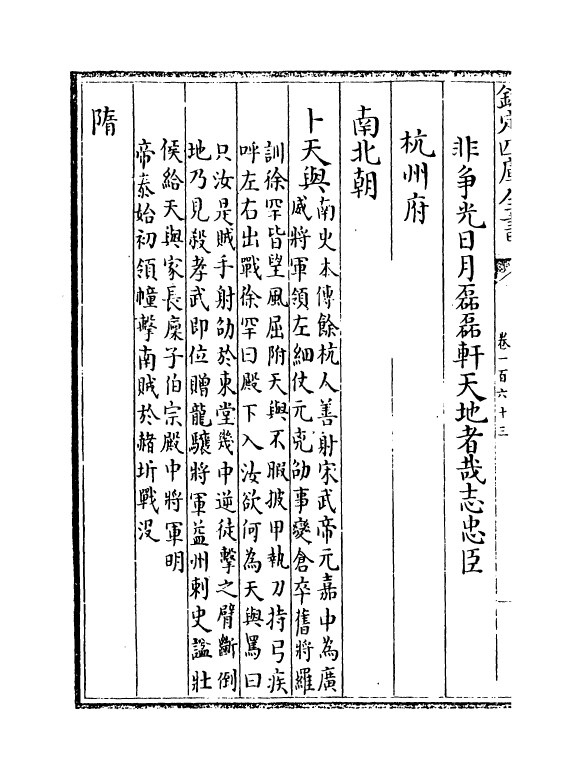 欽定四庫全書
卷一百六十三
非爭光日月磊磊軒天地者哉志忠臣
杭州府
南北朝
卜天與南史本傳餘杭人善射宋武帝元嘉中為廣
威將軍領左細仗元兇劭事變倉卒舊將羅
訓徐罕皆望風屈附天與不暇披甲執刀持弓疾
呼左右出戰徐罕曰殿下入汝欲何為天與罵曰
只汝是賊手射劭於東堂幾中逆徒擊之臂斷倒
地乃見殺孝武即位贈龍驤將軍益州刺史諡壯
侯給天與家長廩子伯宗殿中將軍明
帝泰始初領幢擊南賊於赭圻戰没
隋